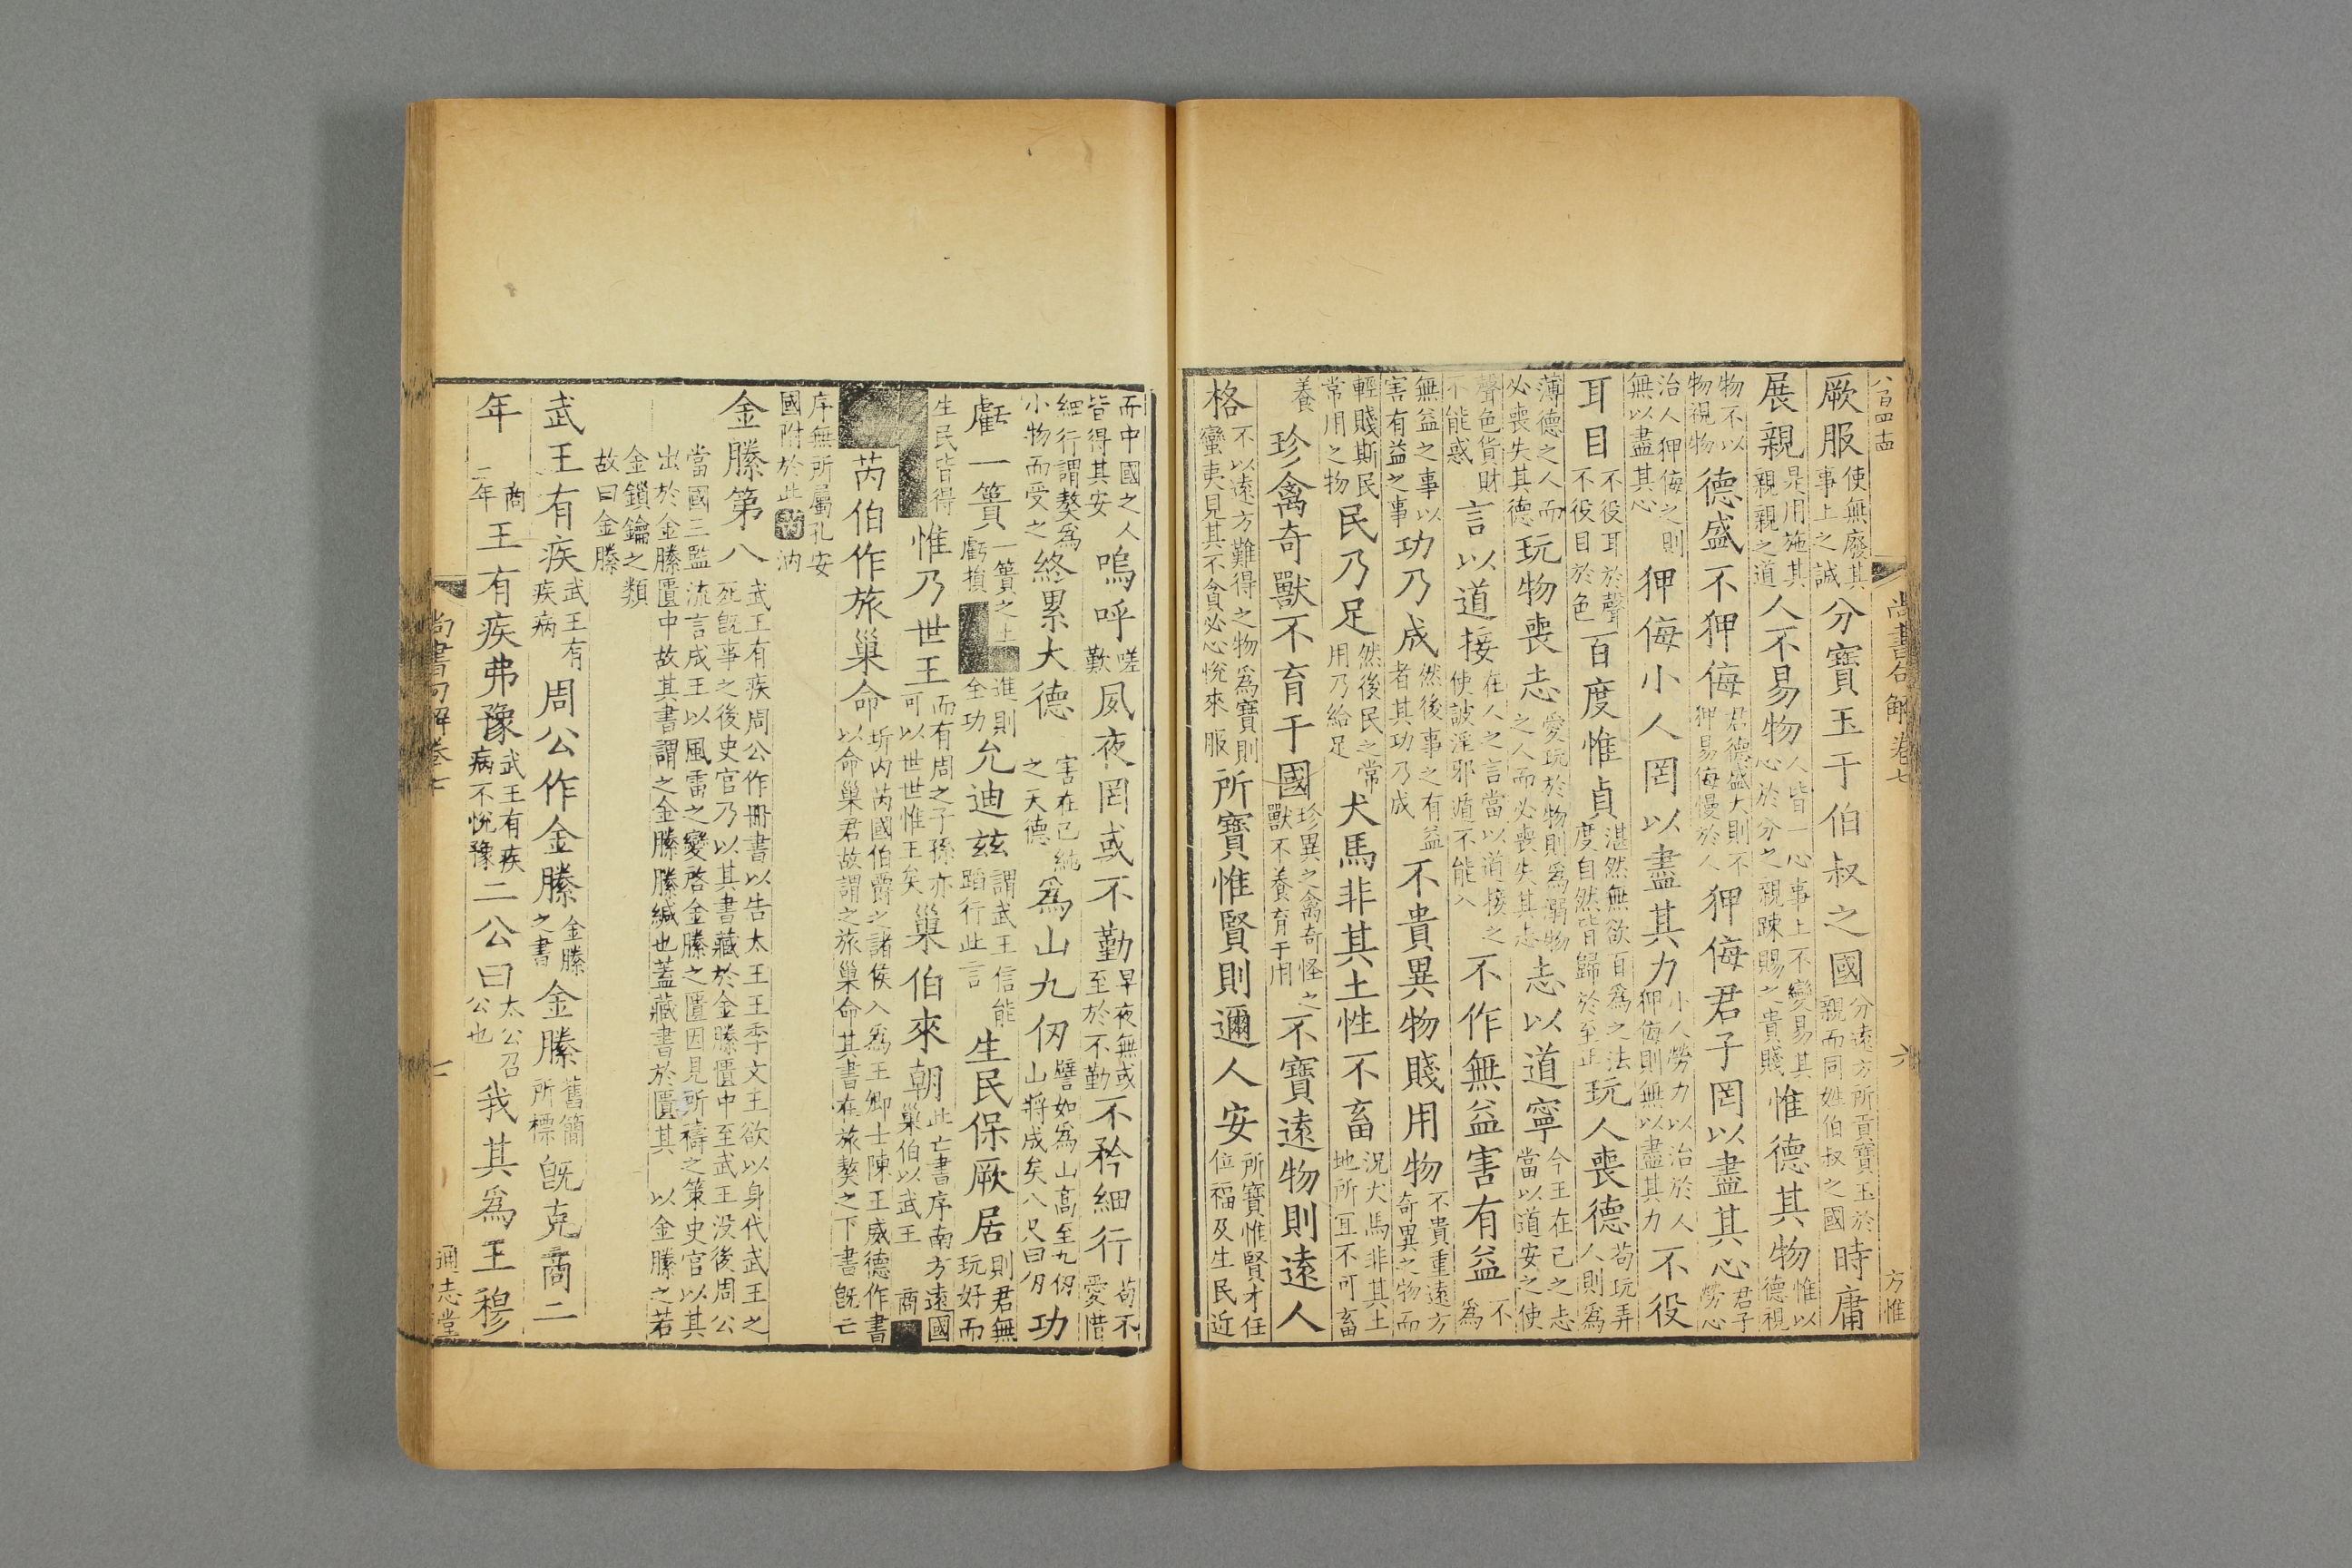 尚書句解卷七 六 方惟
厥服使無廢其事上之誠分寶玉于伯叔之國分遠方所貢寶玉於親而同姓伯叔之國時庸
展親是用施其親親之道人不易物人皆一心事上不變易其心於分之親踈賜之貴賤惟德其物惟以德視
物不以物視物德盛不狎侮君德盛大則不狎易侮慢於人狎侮君子罔以盡其心君子勞心
治人狎侮之則無以盡其心狎侮小人罔以盡其力小人勞力以治於人狎侮則無以盡其力不役
耳目不役耳於聲不役目於色百度惟貞湛然無欲百爲之法度自然皆歸於至正玩人喪德苟玩弄人則爲
薄德之人而必喪失其德玩物喪志愛玩於物則爲溺物之人而必喪失其志志以道寧今王在己之志當以道安之使
聲色貨財不能惑言以道接在人之言當以道接之使詖淫邪遁不能入不作無益害有益不爲
無益之事以害有益之事功乃成然後事之有益者其功乃成不貴異物賤用物不貴重遠方奇異之物而
輕賤斯民常用之物民乃足然後民之常用乃給足犬馬非其土性不畜況犬馬非其土地所宜不可畜
養珍禽奇獸不育于國珍異之禽奇怪之獸不養育于用不寶遠物則遠人
格不以遠方難得之物爲寶則蠻夷見其不貪必心悅來服所寶惟賢則邇人安所寶惟賢才任位福及生民近
而中國之人皆得其安嗚呼嗟歎夙夜罔或不勤早夜無或至於不勤不矜細行苟不愛惜
細行謂獒爲小物而受之終累大德害在己純之天德爲山九仞譬如爲山高至九仞山將成矣八尺曰仞功
虧一簣一簣之土虧損進則全功允迪玆謂武王信能蹈行此言生民保厥居則君無玩好而
生民皆得惟乃世王而有周之子孫亦可以世世惟王矣巢伯來朝此亡書序南方遠國巢伯以武王商
芮伯作旅巢命圻內芮國伯爵之諸侯入爲王卿士陳王威德作書以命巢君故謂之旅巢命其書在旅獒之下書旣亡
序無所屬孔安國附於此芮汭
金縢第八武王有疾周公作冊書以告太王王季文王欲以身代武王之死旣事之後史官乃以其書藏於金縢匱中至武王没後周公
當國三監流言成王以風雷之變啓金縢之匱因見所禱之策史官以其出於金縢匱中故其書謂之金縢縢緘也蓋藏書於匱其以金縢之若
金鎖鑰之類故曰金縢
武王有疾武王有疾病周公作金縢金縢之書金縢舊簡所標旣克商二
年商二年王有疾弗豫武王有疾病不悅豫二公曰太公召公也我其爲王穆
尚書句解卷七 七 通志堂